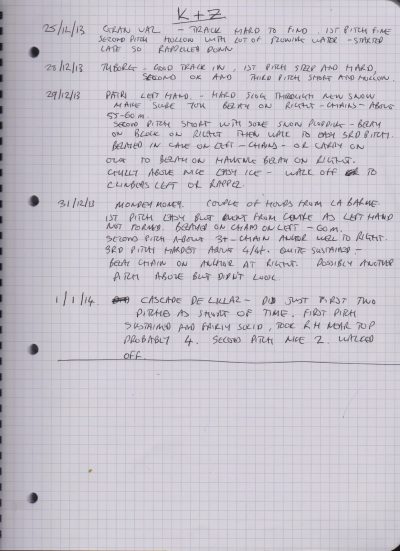 K + Z
25/12/13 GRAN VAL - TRACK HARD TO FIND, 1ST PITCH FINE
SECOND PITCH HOLLOW WITH LOT OF FLOWING WATER - STARTED
LATE SO RAPPELLED DOWN
28/12/13 TUBORG - GOOD TRACK IN, 1ST PITCH STEEP AND HARD,
SECOND OK AND THIRD PITCH SHORT AND HOLLOW.
29/12/13 PATRI LEFT HAND. - HARD SLOG THROUGH NEW SNOW
MAKE SURE YOU BELAY ON RIGHT - CHAINS - ABOVE
55-60m.
SECOND PITCH SHORT WITH SOME SNOW PLODDING - BELAY
ON BLOCK ON RIGHT THEN WALK TO EASY 3RD PITCH.
BELAYED IN CAVE ON LEFT - CHAINS - OR CARRY ON
OVER TO BELAY ON MAKING BELAY ON RIGHT.
GULLY ABOVE NICE EASY ICE - WALK OFF TO
CLIMBERS LEFT OR RAPPEL.
31/12/13 MONDEY MONEY. COUPLE OF HOURS FROM LA BARME.
1ST PITCH EASY BUT WENT FROM CENTRE AS LEFT HAND
NOT FORMED. BELAYED ON CHAIN ON LEFT - 60m.
SECOND PITCH ABOUT 3+ - CHAIN ANCHOR WELL TO RIGHT.
3RD PITCH HARDEST ABOUT 4/4+. QUITE SUSTAINED -
BELAY CHAIN ON ANCHOR AT RIGHT. POSSIBLY ANOTHER
PITCH ABOVE BUT DIDN'T LOOK.
1/1/14 CASCADE DE LILLAZ - DID JUST FIRST TWO
PITCHES AS SHORT OF TIME. FIRST PITCH
SUSTAINED AND FAIRLY SOLID, TOOK RH NEAR TOP
PROBABLY 4. SECOND PITCH NICE 2. WALKED
OFF.